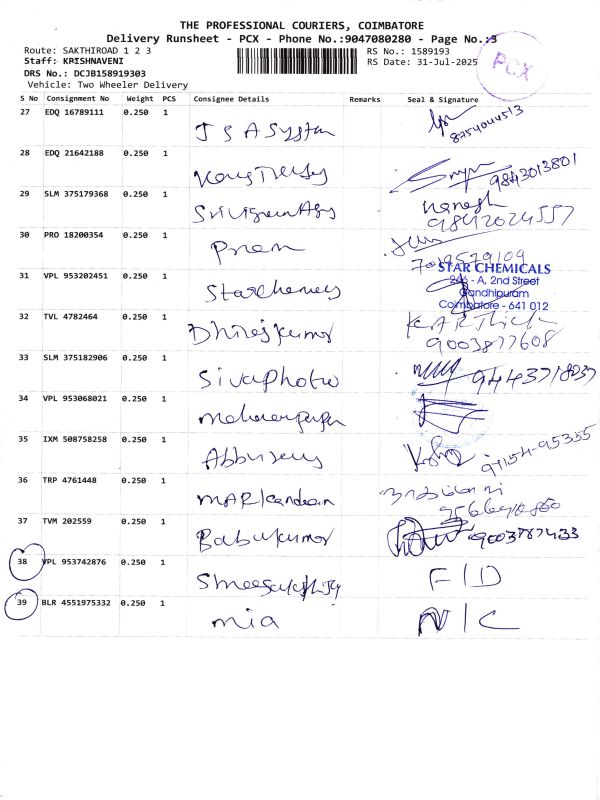 THE PROFESSIONAL COURIERS, COIMBATORE
Delivery Runsheet - PCX - Phone No.:9047080280 - Page No.:3
Route: SAKTHIROAD 1 2 3
RS No.: 1589193
Staff: KRISHNAVENI
RS Date: 31-Jul-2025
PCX
DRS No.: DCJB158919303
Vehicle: Two Wheeler Delivery
S No Consignment No Weight PCS Consignee Details Remarks Seal & Signature
27 EDQ 16789111 0.250 1 J S A System 8754044513
28 EDQ 21642188 0.250 1 9843013801
29 SLM 375179368 0.250 1 9842024557
30 PRO 18200354 0.250 1 Prem
31 VPL 953202451 0.250 1 STAR CHEMICALS
- A, 2nd Street
Gandhipuram
Coimbatore - 641 012
32 TVL 4782464 0.250 1 Dhirajkumar KARthick
9003877608
33 SLM 375182906 0.250 1 Sivaphoto 9443718037
34 VPL 953068021 0.250 1
35 IXM 508758258 0.250 1 97154-95355
36 TRP 4761448 0.250 1
37 TVM 202559 0.250 1 Babukumar 9003787433
38 VPL 953742876 0.250 1 F/D
39 BLR 4551975332 0.250 1 mia N/C